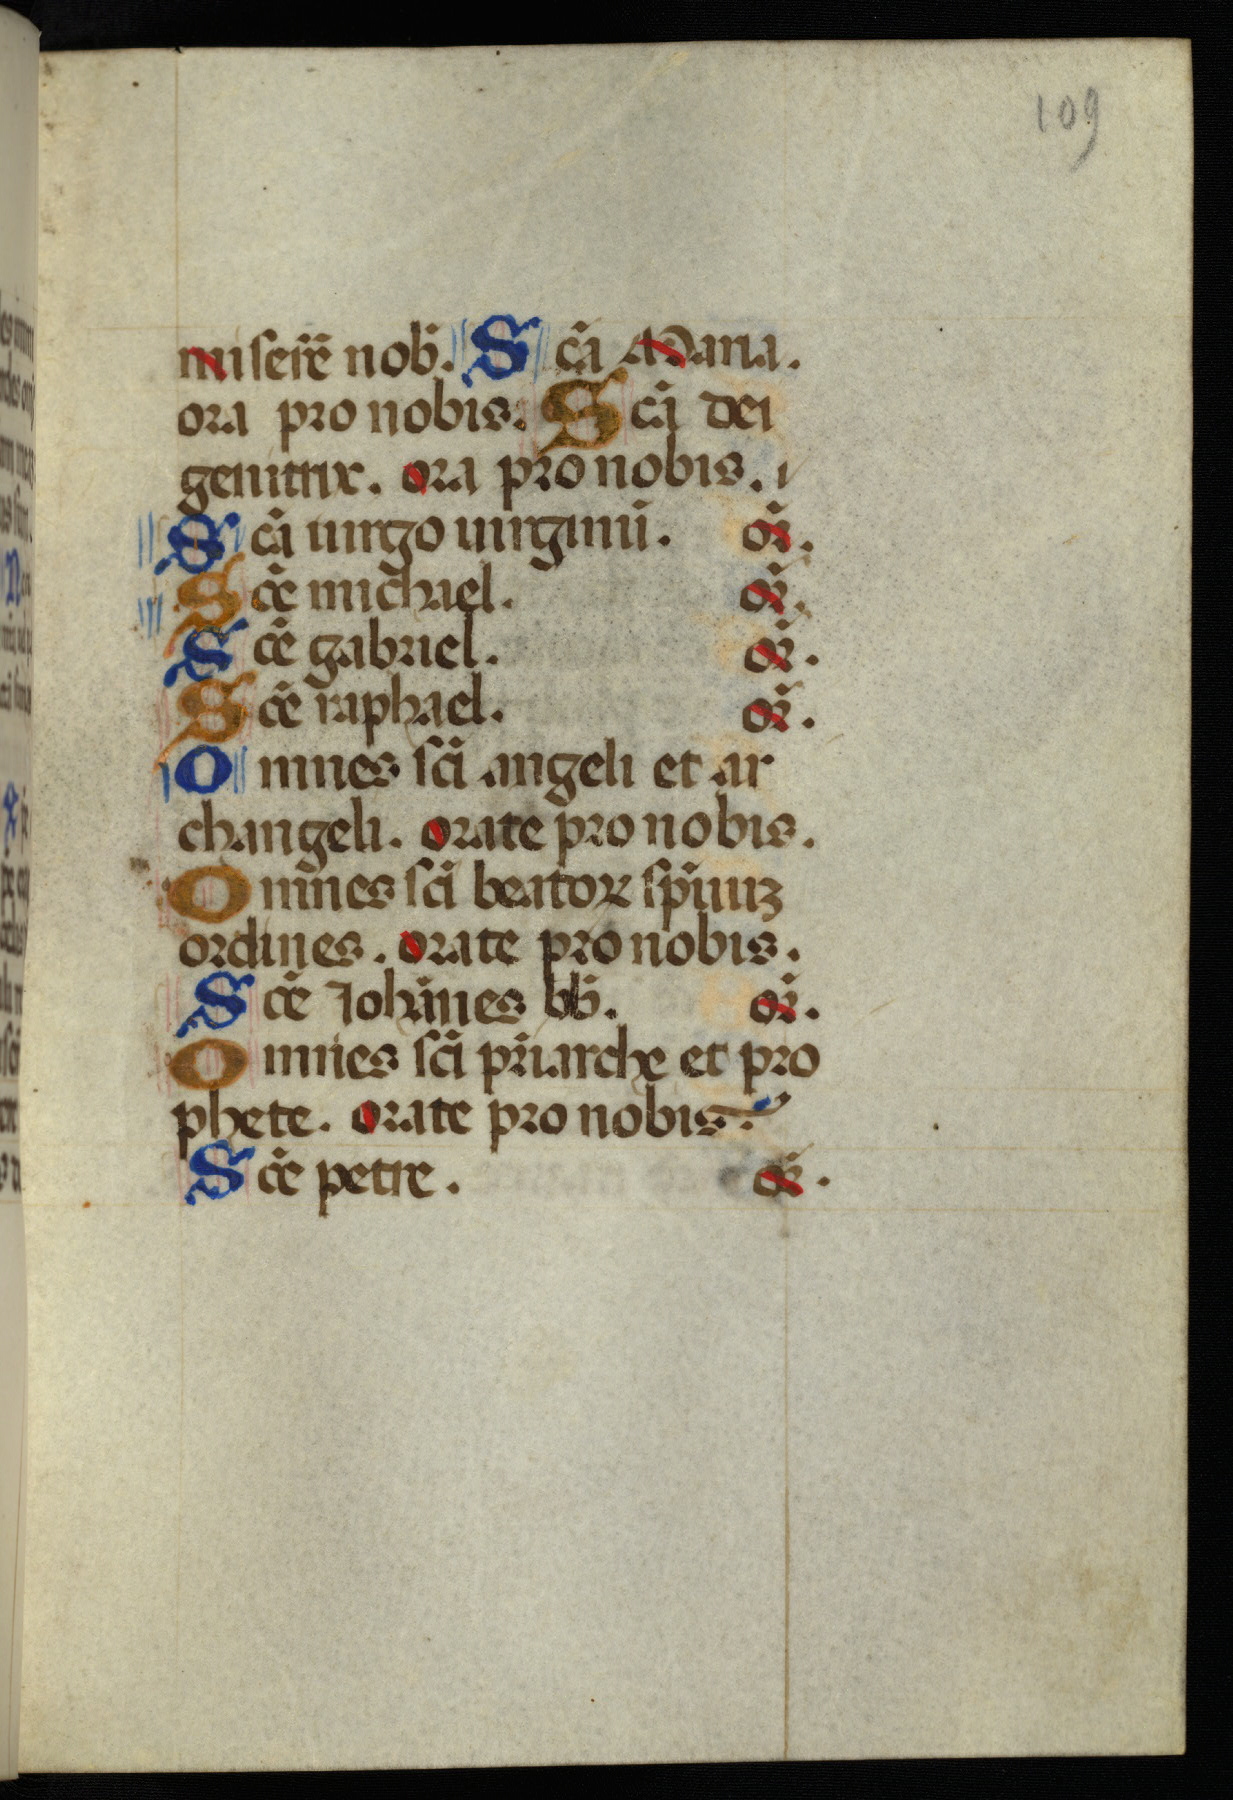 109
miserẽ nob̃. Scã Maria.
ora pro nobis. Scã dei
genitrix. ora pro nobis.
Scã uirgo uirginũ. or̃.
Scẽ michael. or̃.
Scẽ gabriel. or̃.
Scẽ raphael. or̃.
Omnes sc̃i angeli et ar
changeli. orate pro nobis.
Om̃nes sc̃i beatoꝝ sp̃iuuʒ
ordines. orate pro nobis.
Scẽ Joh̃nnes bb̃. or̃.
Omnes sc̃i pr̃iarche et pro
phete. orate pro nobis.
Scẽ petre. or̃.